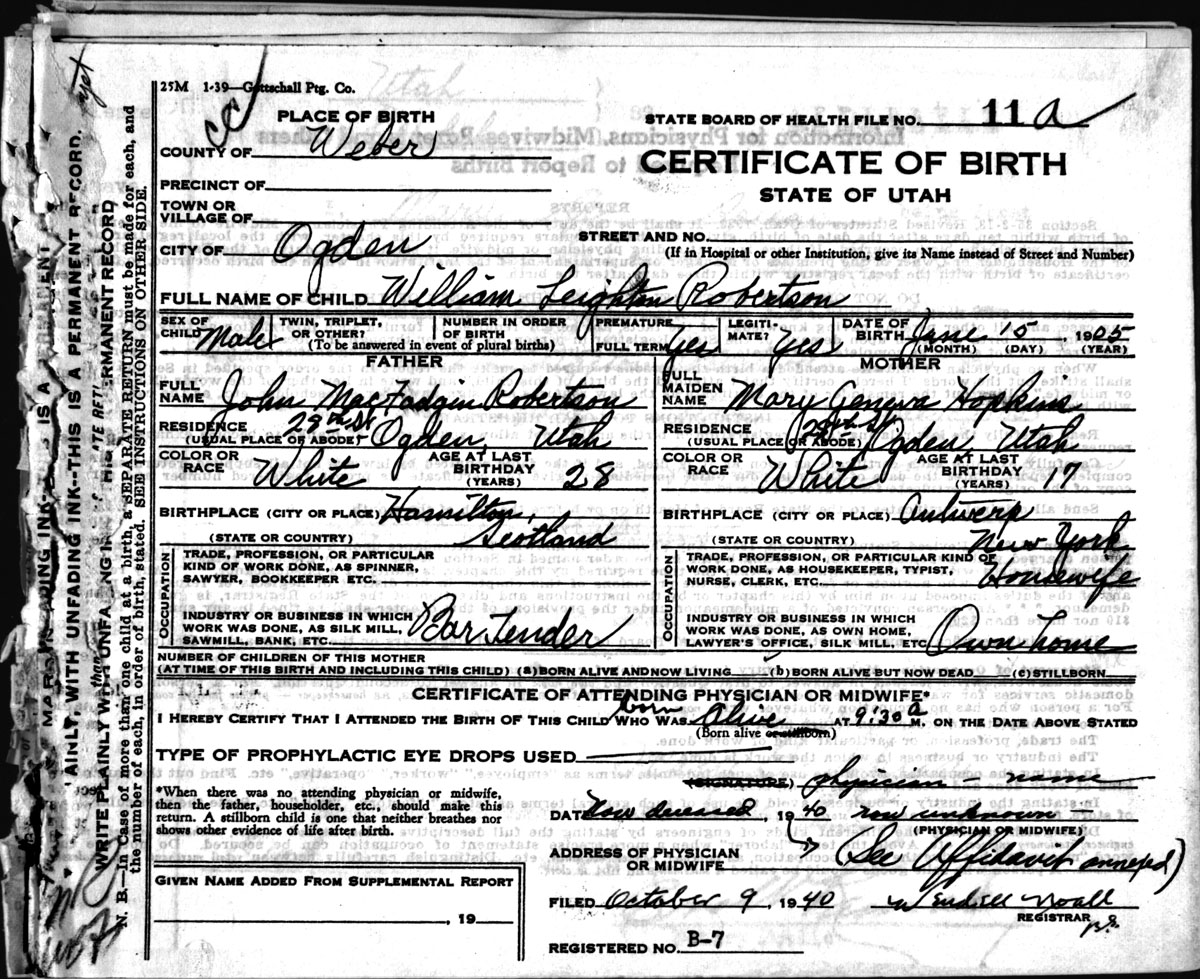 25M 1-39—Gottschall Ptg. Co.
PLACE OF BIRTH
COUNTY OF Weber
PRECINCT OF
TOWN OR
VILLAGE OF
CITY OF Ogden
STATE BOARD OF HEALTH FILE NO. 11 a
CERTIFICATE OF BIRTH
STATE OF UTAH
STREET AND NO.
(If in Hospital or other Institution, give its Name instead of Street and Number)
FULL NAME OF CHILD William Leighton Robertson
SEX OF CHILD Male
TWIN, TRIPLET, OR OTHER?
NUMBER IN ORDER OF BIRTH
(To be answered in event of plural births)
PREMATURE
FULL TERM yes
LEGITI-MATE? yes
DATE OF BIRTH June 15, 1905
(MONTH) (DAY) (YEAR)
FATHER
FULL NAME John MacFadgin Robertson
RESIDENCE 29th St Ogden, Utah
(USUAL PLACE OF ABODE)
COLOR OR RACE White
AGE AT LAST BIRTHDAY (YEARS) 28
BIRTHPLACE (CITY OR PLACE) Hamilton,
(STATE OR COUNTRY) Scotland
OCCUPATION
TRADE, PROFESSION, OR PARTICULAR
KIND OF WORK DONE, AS SPINNER,
SAWYER, BOOKKEEPER ETC.
INDUSTRY OR BUSINESS IN WHICH
WORK WAS DONE, AS SILK MILL,
SAWMILL, BANK, ETC. Bar Tender
MOTHER
FULL MAIDEN NAME Mary Geneva Hopkins
RESIDENCE 29th St Ogden, Utah
(USUAL PLACE OR ABODE)
COLOR OR RACE White
AGE AT LAST BIRTHDAY (YEARS) 17
BIRTHPLACE (CITY OR PLACE) Antwerp
(STATE OR COUNTRY) New York
OCCUPATION
TRADE, PROFESSION, OR PARTICULAR KIND OF
WORK DONE, AS HOUSEKEEPER, TYPIST,
NURSE, CLERK, ETC. Housewife
INDUSTRY OR BUSINESS IN WHICH
WORK WAS DONE, AS OWN HOME,
LAWYER'S OFFICE, SILK MILL, ETC Own home
NUMBER OF CHILDREN OF THIS MOTHER
(AT TIME OF THIS BIRTH AND INCLUDING THIS CHILD) (a) BORN ALIVE AND NOW LIVING (b) BORN ALIVE BUT NOW DEAD (c) STILLBORN
CERTIFICATE OF ATTENDING PHYSICIAN OR MIDWIFE*
I HEREBY CERTIFY THAT I ATTENDED THE BIRTH OF THIS CHILD WHO WAS born Alive AT 9:30 a M. ON THE DATE ABOVE STATED
(Born alive or stillborn)
TYPE OF PROPHYLACTIC EYE DROPS USED
*When there was no attending physician or midwife,
then the father, householder, etc., should make this
return. A stillborn child is one that neither breathes nor
shows other evidence of life after birth.
(SIGNATURE) physician - name
DATE Now deceased, 1940 now unknown
(PHYSICIAN OR MIDWIFE)
ADDRESS OF PHYSICIAN
OR MIDWIFE (See Affidavit annexed)
GIVEN NAME ADDED FROM SUPPLEMENTAL REPORT
, 19
FILED October 9, 1940 Wendell Noall
REGISTRAR
REGISTERED NO. B-7
AINLY, WITH UNFADING INK--THIS IS A PERMANENT RECORD.
N. B.—In case of more than one child at a birth, a SEPARATE RETURN must be made for each, and
the number of each, in order of birth, stated. SEE INSTRUCTIONS ON OTHER SIDE.